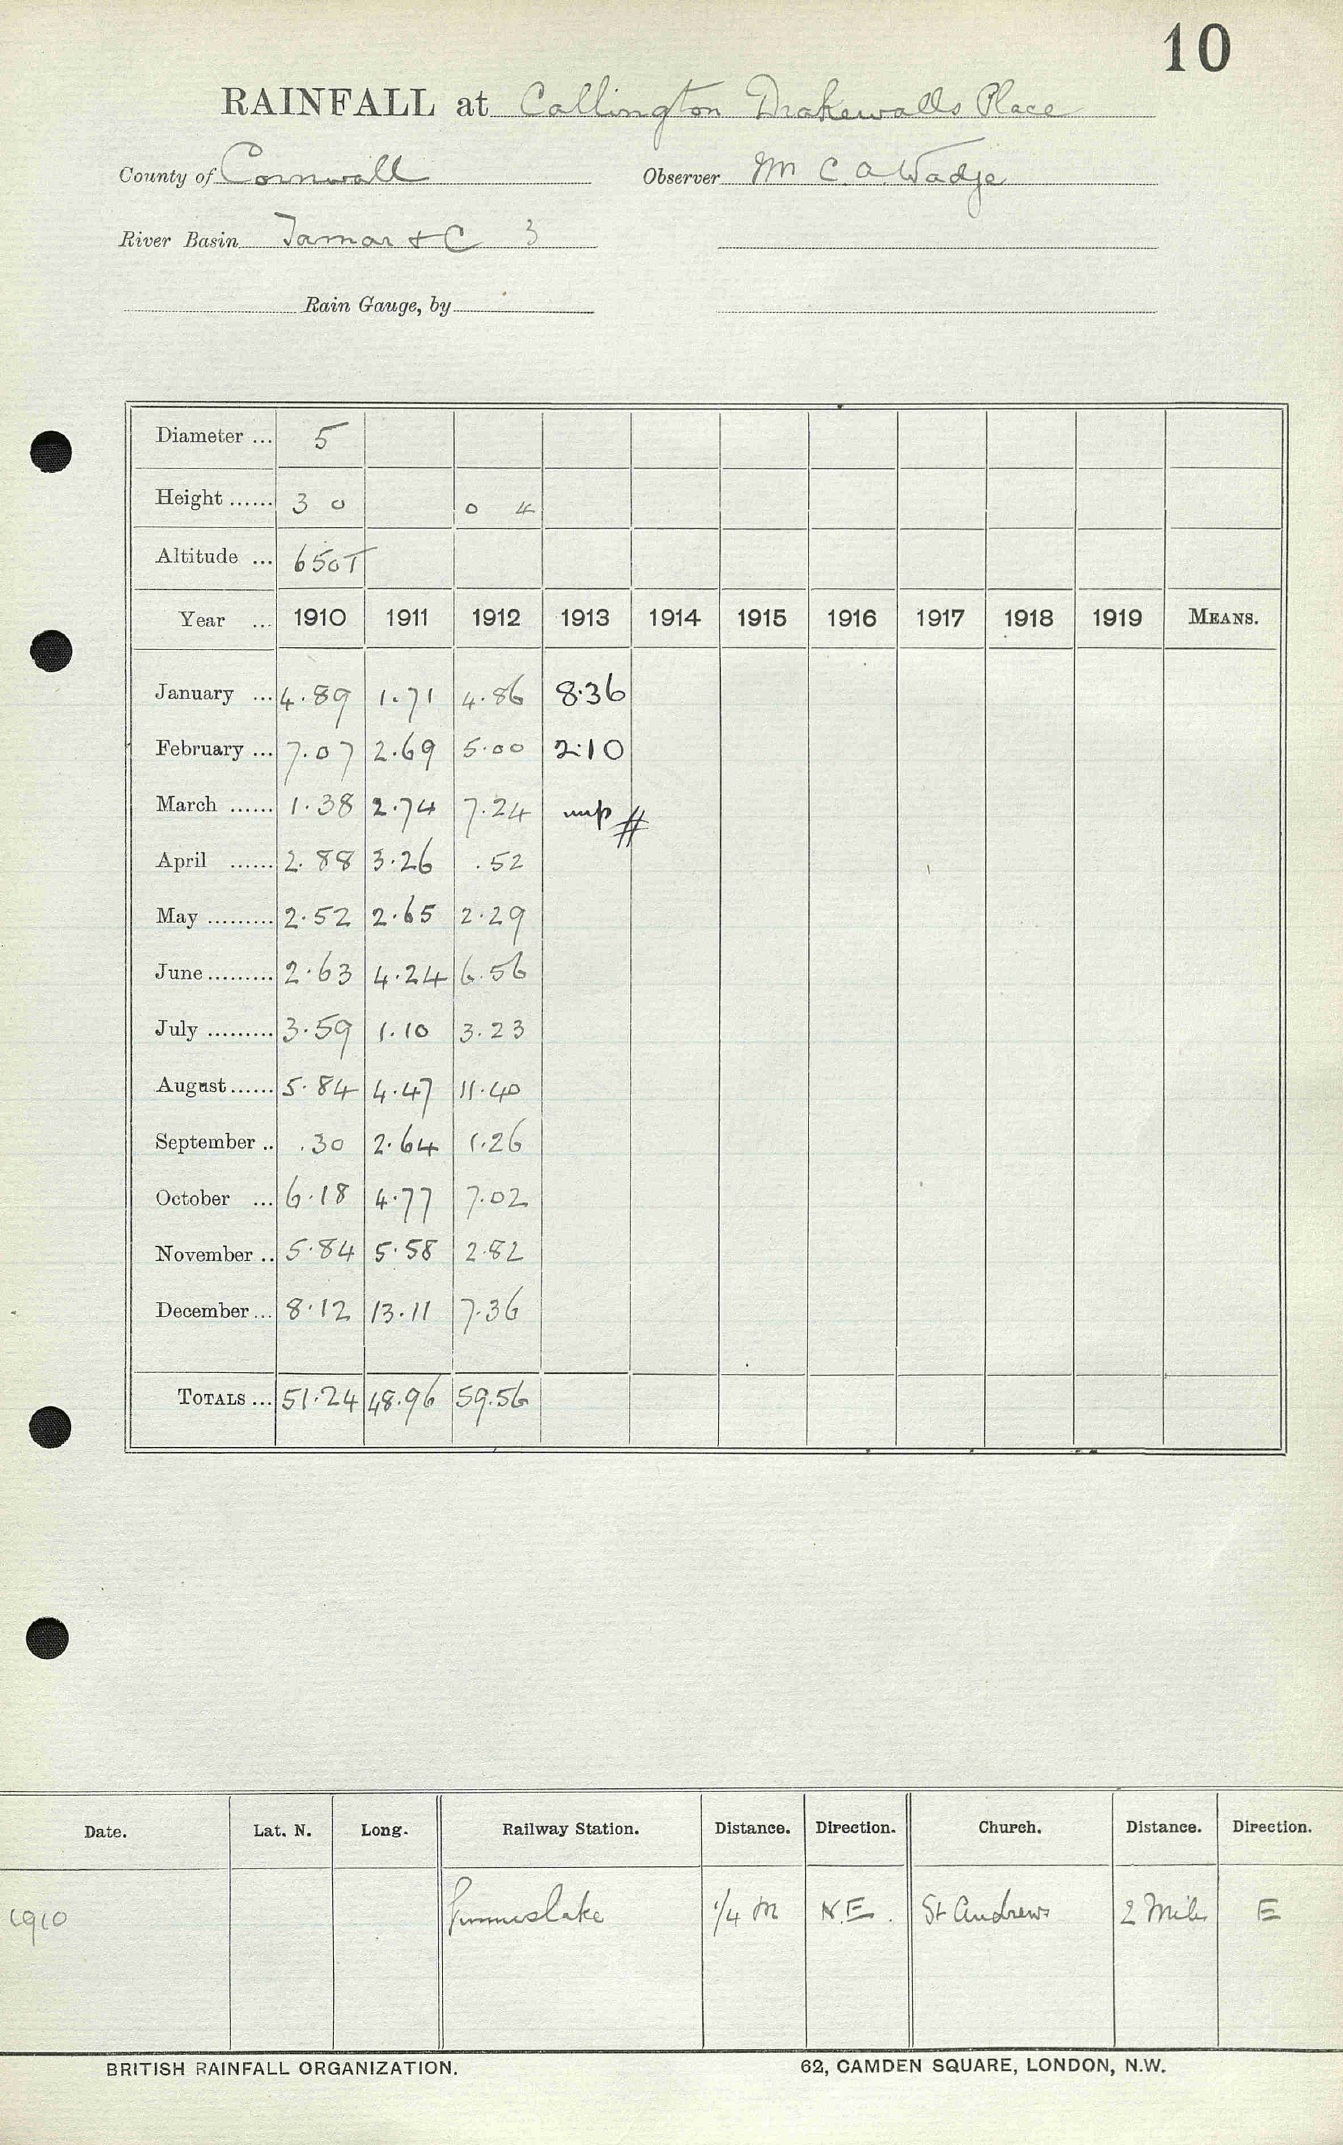 10
RAINFALL at Callington Drakewalls Place
County of Cornwall Observer Mr C. A. Wadge
River Basin Tamar & C 3
Rain Gauge, by
Diameter ... 5
Height ...... 3 0 0 4
Altitude ... 650T
Year ... 1910 1911 1912 1913 1914 1915 1916 1917 1918 1919 MEANS.
January ... 4.89 1.71 4.86 8.36
February ... 7.07 2.69 5.00 2.10
March ...... 1.38 2.74 7.24 #
April ...... 2.88 3.26 .52
May ......... 2.52 2.65 2.29
June ......... 2.63 4.24 6.56
July ......... 3.59 1.10 3.23
August ...... 5.84 4.47 11.40
September .. .30 2.64 1.26
October ... 6.18 4.77 7.02
November .. 5.84 5.58 2.82
December ... 8.12 13.11 7.36
TOTALS ... 51.24 48.96 59.56
Date. Lat. N. Long. Railway Station. Distance. Direction. Church. Distance. Direction.
1910 Gunnislake 1/4 m N.E. St Andrews 2 Miles E
BRITISH RAINFALL ORGANIZATION. 62, CAMDEN SQUARE, LONDON, N.W.